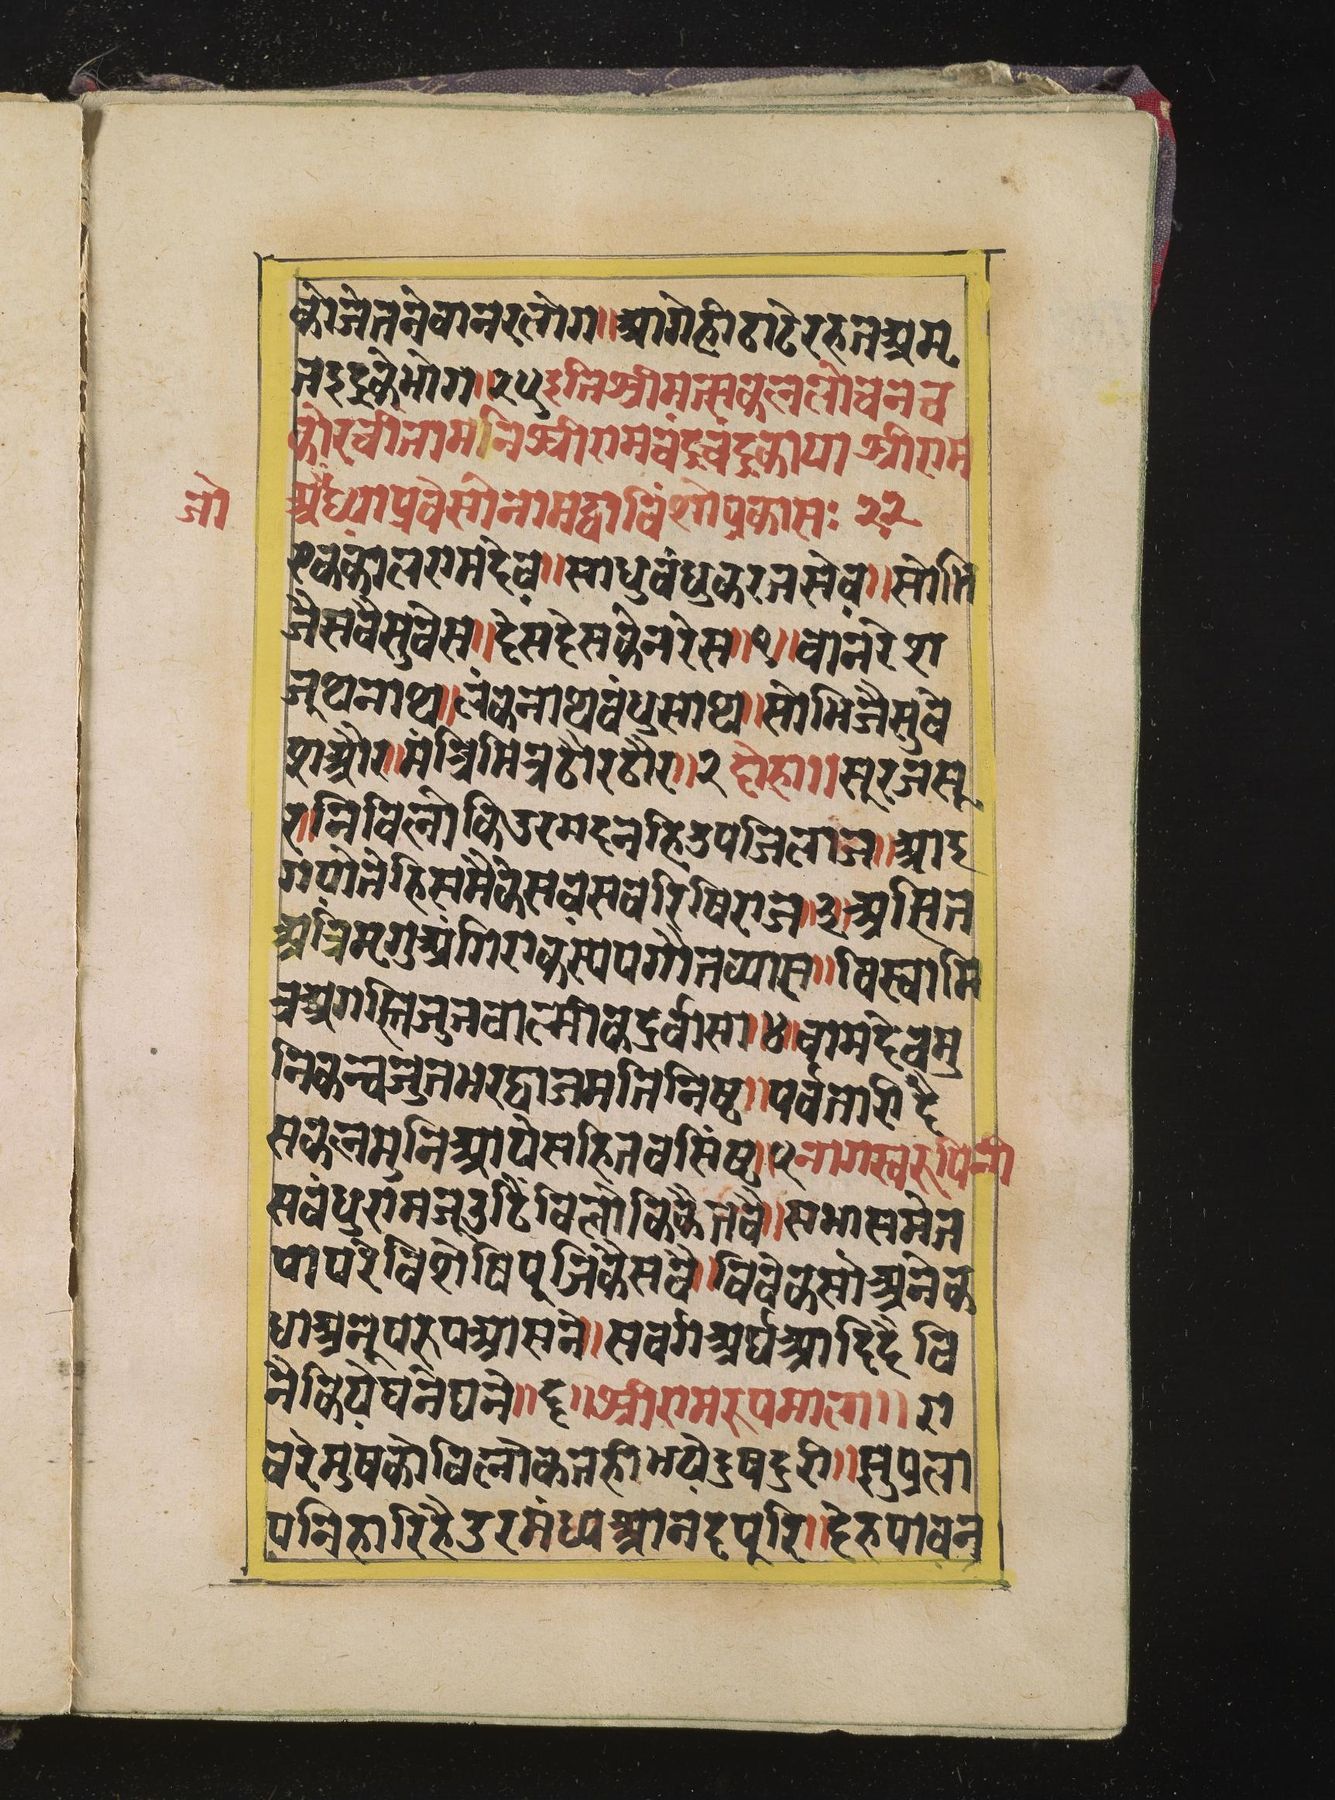 को जेतने वानर लोग॥ आगेही ठाढे रहत अम
त इंद्र के भोग॥ २५ इति श्रीमत्सकललोचन च
कोर चींतामनि श्रीरामचंद्र चंद्रकायां श्रीराम
अंध्याप्रवेसो नाम द्वाविंशो प्रकासः २२
जो
एककाल रामदेव॥ साधुबंधु करत सेव॥ सोभि
जै सवै सुवेस॥ देस देस के नरेस॥ १॥ वानरेश
जूथनाथ॥ लंकनाथ वंधु साथ॥ सोभिजै सुवे
श और॥ मंत्रि मित्र ठौर ठौर॥ २ दोहा॥ सूरज सू
र॥ नि विलोकि उर मदन हि उपजि लाज॥ आइ
गए तेहि समै केसव सव रिषिराज॥ ३॥ असित
अत्रि मृगु अंगिरा कस्यप गौत व्यास॥ विस्वामि
त्र अगस्ति जुत वाल्मीक दुर्वासा॥ ४॥ वामदेव मु
नि कन्व जुत भरद्वाज मतिनिष्ट॥ पर्वतारि दै
सकल मुनि आये सहित वसिष्ट॥ ५ नागस्वरूपिनी
सवंधु राम जू उठि विलोकि कै तवै॥ सभा समेत
पा परे विशेषि पूजिकै सवै॥ विवेक सो अनेक
धा अनूप रूप आसने॥ सवर्ग अर्घ आदि दै वि
नै किये घने घने॥ ६॥ श्रीराम रूपमाला॥ रा
वरे मुष को विलोकत ही भये दुष दुरी॥ सुप्रला
प नि हारि है उर मंध्य आनद पूरि॥ देह पावन